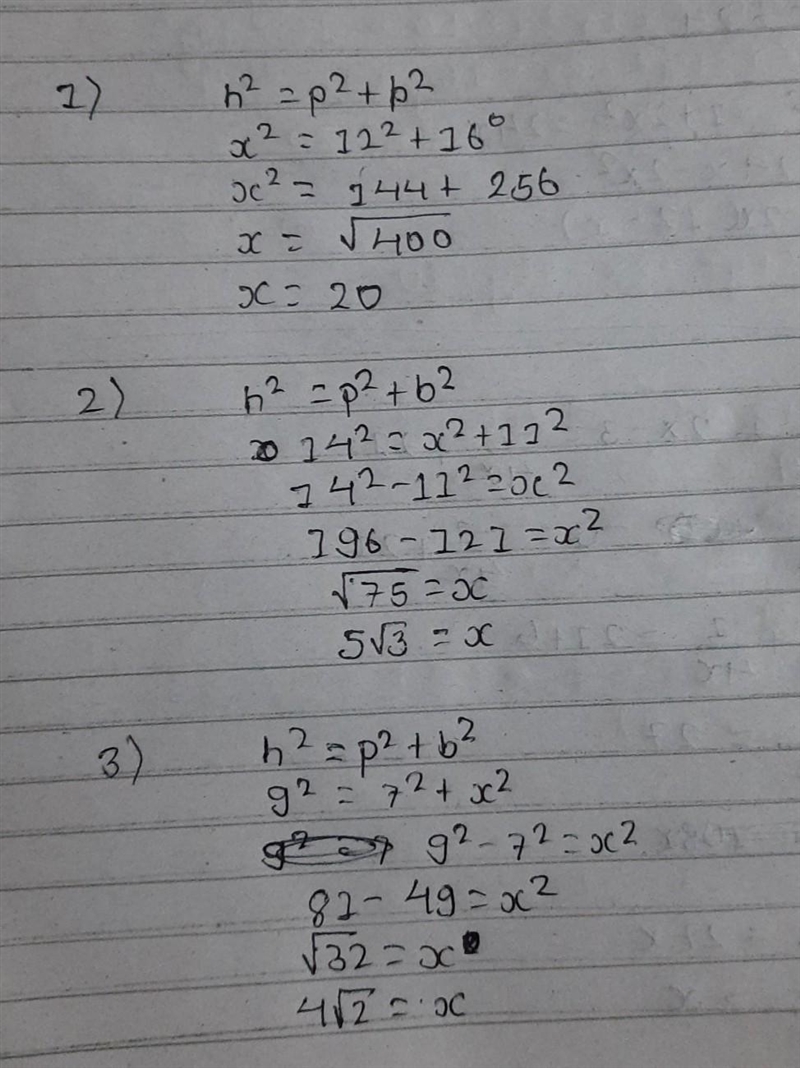 1) h² = p² + b²
x² = 12² + 16⁰
x² = 144 + 256
x = √400
x = 20
2) h² = p² + b²
14² = x² + 11²
14² - 11² = x²
196 - 121 = x²
√75 = x
5√3 = x
3) h² = p² + b²
9² = 7² + x²
9² - 7² = x²
81 - 49 = x²
√32 = x
4√2 = x